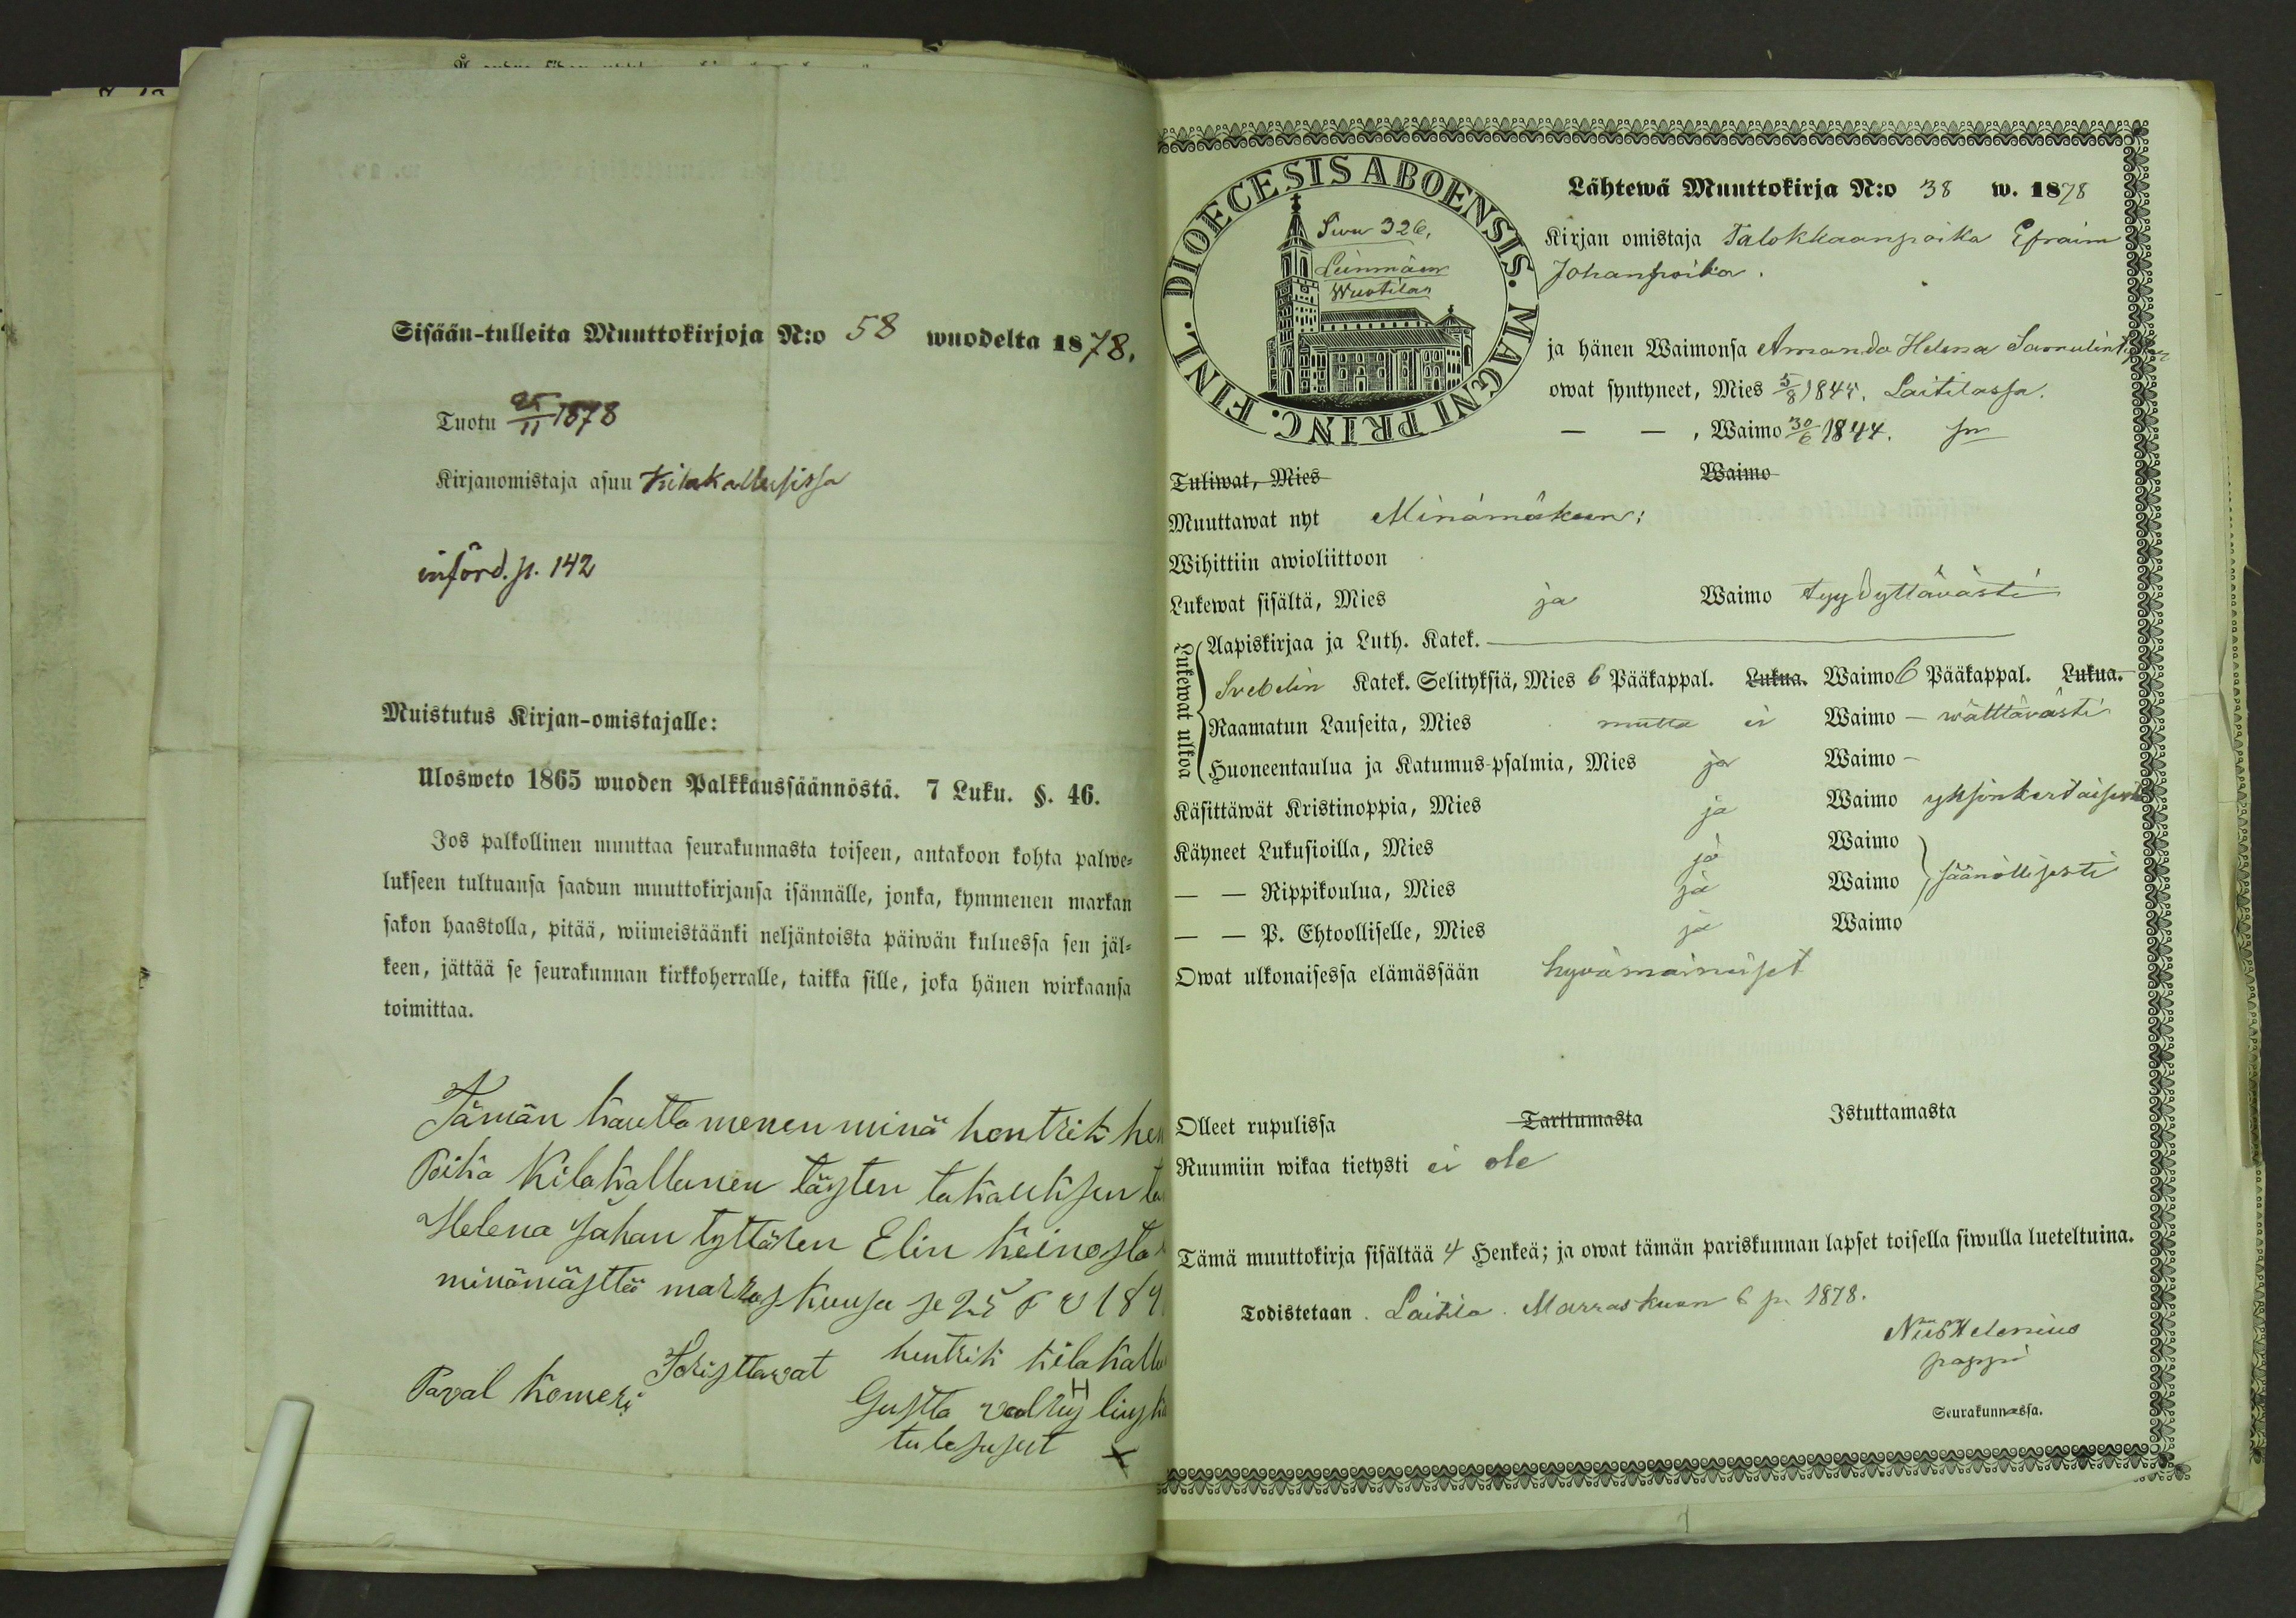 Sisään-tulleita Muuttokirjoja N:o 58 wuodelta 1878.
Tuotu 25/11 1878
Kirjanomistaja asuu Kilakallusissa
införd. p. 142
Muistutus Kirjan-omistajalle:
Ulosweto 1865 wuoden Palkkaussäännöstä. 7 Luku. §. 46.
Jos palkollinen muuttaa seurakunnasta toiseen, antakoon kohta palwe-
lukseen tultuansa saadun muuttokirjansa isännälle, jonka, kymmenen markan
sakon haastolla, pitää, wiimeistäänki neljäntoista päiwän kuluessa sen jäl-
keen, jättää se seurakunnan kirkkoherralle, taikka sille, joka hänen wirkaansa
toimittaa.
Tämän kautta menen minä hentrik hen
Poika Kilakallunen täyten takauksen
Helena Johan tyttären Elin keinosta
minämästtä marraskuusa se 25 P v 18
Toristtavat hentrik kilakallu
Paval komeri
Gustta
H
X
DIOECESIS ABOENSIS. MAGNI PRINC. FINL.
Sivu 326.
Leinmäen
Wuotilas
Lähtewä Muuttokirja N:o 38 w. 1878
Kirjan omistaja Talokkaanpoika Efraim
Johanpoika.
ja hänen Waimonsa Amanda Helena
owat syntyneet, Mies 5/8 1845. Laitilassa.
— — , Waimo 30/6 1844. sn
Tuliwat, Mies Waimo
Muuttawat nyt Minämäkeen:
Wihittiin awioliittoon
Lukewat sisältä, Mies ja Waimo tyydyttäwästi
Lukewat ulkoa
Aapiskirjaa ja Luth. Katek. —
Svebelin Katek. Selityksiä, Mies 6 Pääkappal. Lukua. Waimo 6 Pääkappal. Lukua.
Raamatun Lauseita, Mies mutta ei Waimo — wälttäwästi
Huoneentaulua ja Katumus-psalmia, Mies ja Waimo —
Käsittäwät Kristinoppia, Mies ja Waimo yksinkertaisesti
Käyneet Lukusioilla, Mies ja Waimo
— — Rippikoulua, Mies ja Waimo säänöllisesti
— — P. Ehtoolliselle, Mies ja Waimo
Owat ulkonaisessa elämässään hyvämainiset
Olleet rupulissa Tarttumasta Istuttamasta
Ruumiin wikaa tietysti ei ole
Tämä muuttokirja sisältää 4 Henkeä; ja owat tämän pariskunnan lapset toisella siwulla lueteltuina.
Todistetaan. Laitila. Marraskuun 6 p. 1878.
Helenius
pappi
Seurakunnassa.